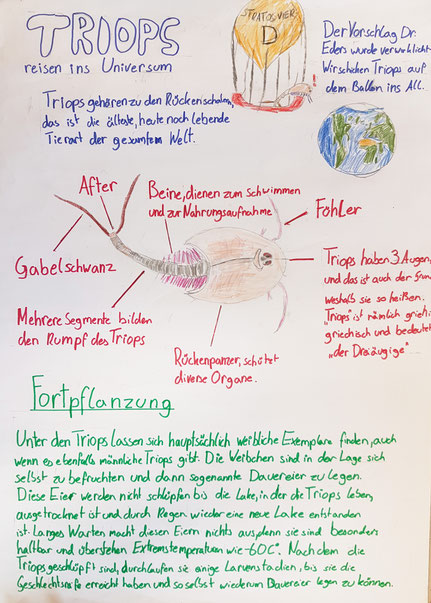 TRIOPS
reisen ins Universum
STRATOS VIER
D
Der Vorschlag Dr.
Eders wurde verwirklicht
Wir schicken Triops auf
dem Ballon ins All.
Triops gehören zu den Rückenschalern,
das ist die älteste, heute noch lebende
Tierart der gesamtem Welt.
After
Beine, dienen zum schwimmen
und zur Nahrungsaufnahme
Fühler
Gabelschwanz
Triops haben 3 Augen,
und das ist auch der
weshalb sie so heißen.
"Triops" ist nämlich
griechisch und bedeutet
"der Dreiäugige"
Mehrere Segmente bilden
den Rumpf des Triops
Rückenpanzer, schützt
diverse Organe.
Fortpflanzung
Unter den Triops lassen sich hauptsächlich weibliche Exemplare finden, auch
wenn es ebenfalls männliche Triops gibt. Die Weibchen sind in der Lage sich
selbst zu befruchten und dann sogenannte Dauereier zu legen.
Diese Eier werden nicht schlüpfen bis die Lake, in der die Triops leben,
ausgetrocknet ist und durch Regen wieder eine neue Lake entstanden
ist. Langes Warten macht diesen Eiern nichts aus, denn sie sind besonders
haltbar und überstehen Extremtemperaturen wie -60C°. Nachdem die
Triops geschlüpft sind, durchlaufen sie einige Larvenstadien, bis sie die
Geschlechtsreife erreicht haben und so selbst wiederum Dauereier legen zu können.